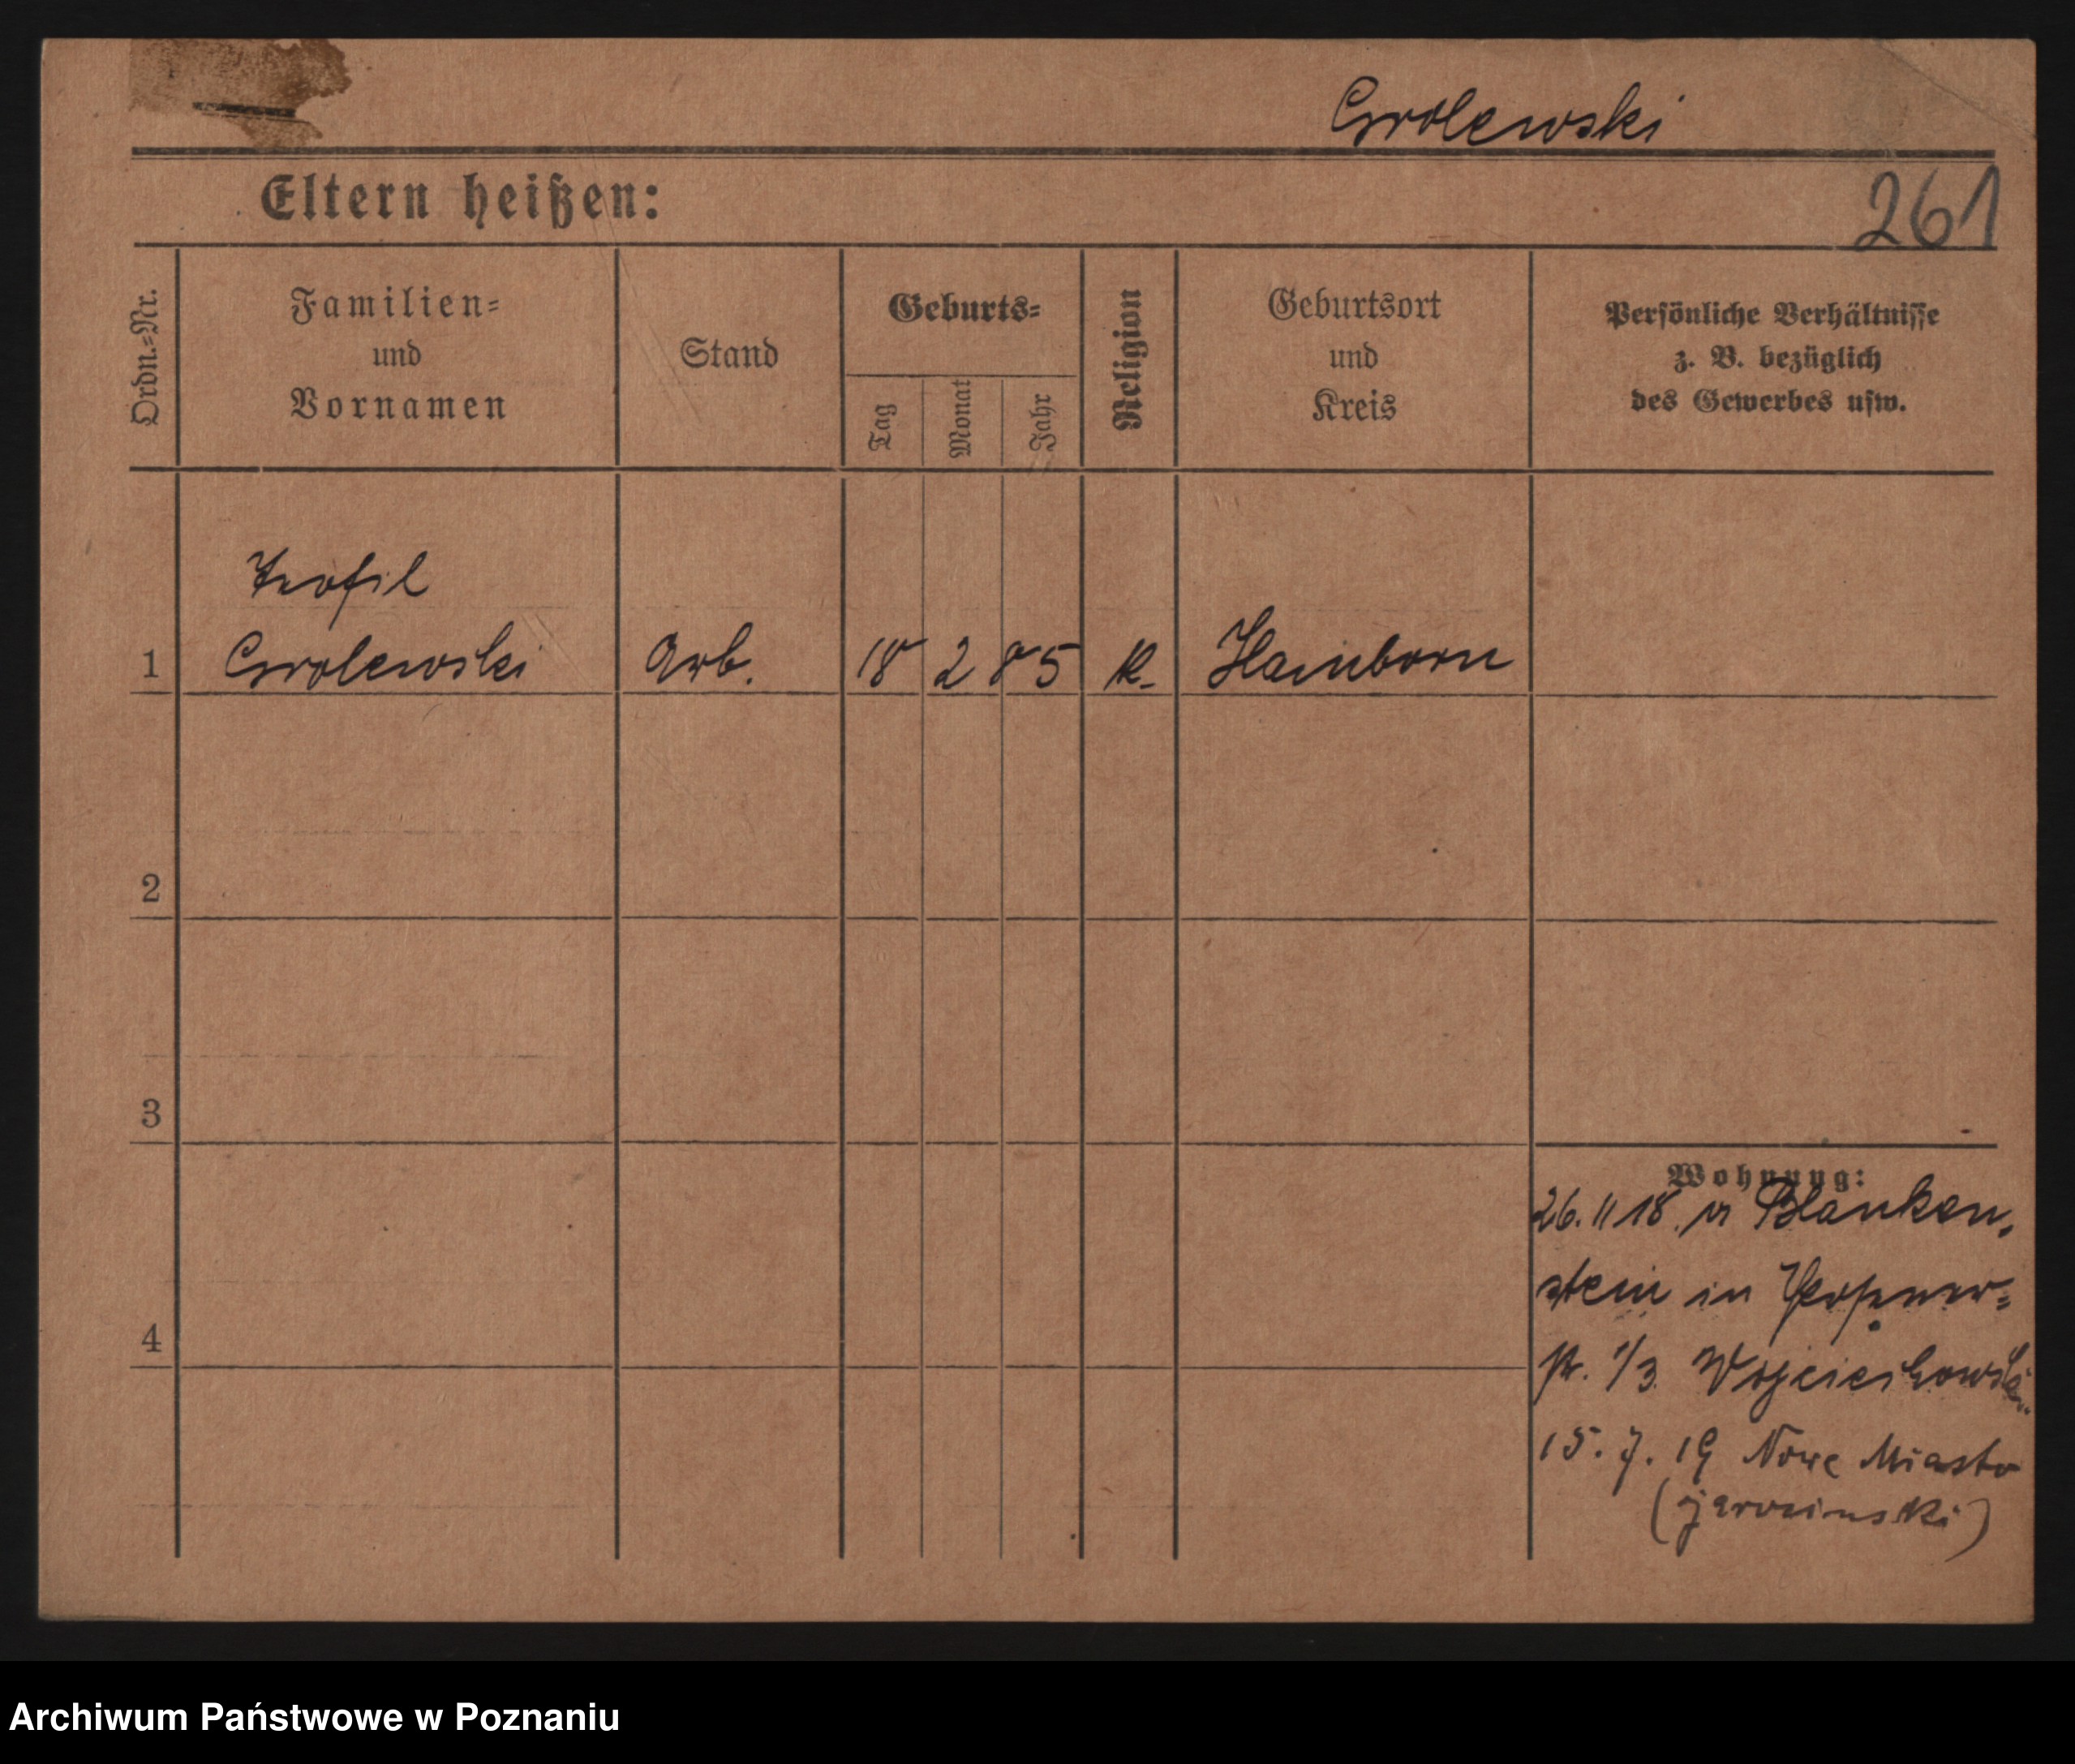 Grolewski
Eltern heißen:
261
Ordn.-Nr.
Familien-
und
Vornamen
Stand
Geburts-
Tag
Monat
Jahr
Religion
Geburtsort
und
Kreis
Persönliche Verhältnisse
z. B. bezüglich
des Gewerbes usw.
Teofil
1 Grolewski Arb. 18 2 85 K. Hamborn
2
3
4
Wohnung:
26. 11 18 v. Blanken-
stein in Posener-
str. 1/3 Wojciechowski
15. 7. 19 Nowe Miasto
(jarocinski)
Archiwum Państwowe w Poznaniu